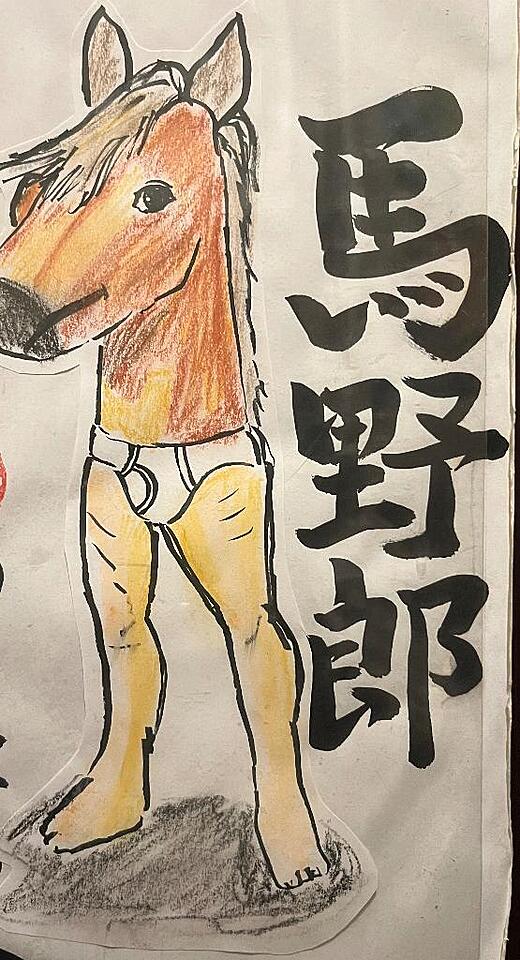 馬野郎